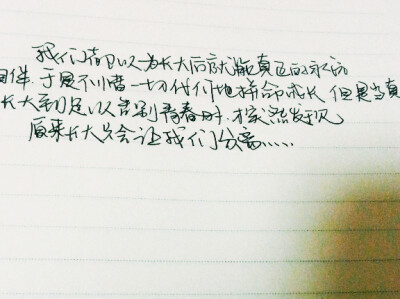 我们都以为长大后就能真正的永远
相伴.于是不惜一切代价地拼命成长.但是当真
长大到足以告别青春时.才突然发现
原来长大只会让我们分离......